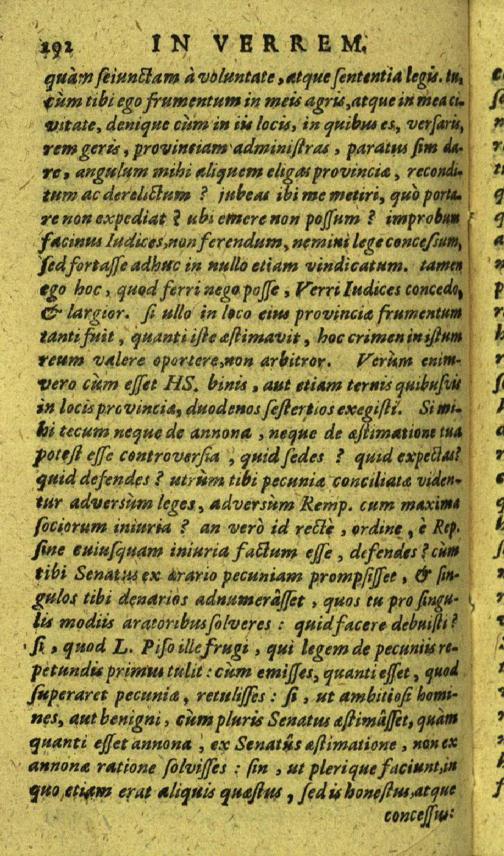 192 IN VERREM.
quàm seiunctam à voluntate, atque sententia legis. tu,
cùm tibi ego frumentum in meis agris, atque in mea ci-
vitate, denique cùm in iis locis, in quibus es, versaris,
rem geris, provinciam administras, paratus sim da-
re, angulum mihi aliquem eligas provinciæ, recondi-
tum ac derelictum? jubeas ibi me metiri, quò porta-
re non expediat? ubi emere non possum? improbum
facinus Iudices, non ferendum, nemini lege concessum,
sed fortasse adhuc in nullo etiam vindicatum. tamen
ego hoc, quod ferri nego posse, Verri Iudices concedo,
& largior. si ullo in loco eius provinciæ frumentum
tanti fuit, quanti iste æstimavit, hoc crimen in istum
reum valere oportere, non arbitror. Verùm enim-
vero cùm esset HS. binis, aut etiam ternis quibusvis
in locis provinciæ, duodenos sestertios exegisti. Si mi-
hi tecum neque de annona, neque de æstimatione tua
potest esse controversia, quid sedes? quid expectas?
quid defendes? utrùm tibi pecuniæ conciliatæ viden-
tur adversùm leges, adversùm Remp. cum maxima
sociorum iniuria? an verò id rectè, ordine, è Rep.
sine cuiusquam iniuria factum esse, defendes? cùm
tibi Senatus ex ærario pecuniam prompsisset, & sin-
gulos tibi denarios adnumerâsset, quos tu pro singu-
lis modiis aratoribus solveres: quid facere debuisti?
si, quod L. Piso ille frugi, qui legem de pecuniis re-
petundis primus tulit: cùm emisses, quanti esset, quod
superaret pecuniæ, retulisses: si, ut ambitiosi homi-
nes, aut benigni, cùm pluris Senatus æstimâsset, quàm
quanti esset annona, ex Senatûs æstimatione, non ex
annonæ ratione solvisses: sin, ut plerique faciunt, in
quo etiam erat aliquis quæstus, sed is honestus, atque
concessus: